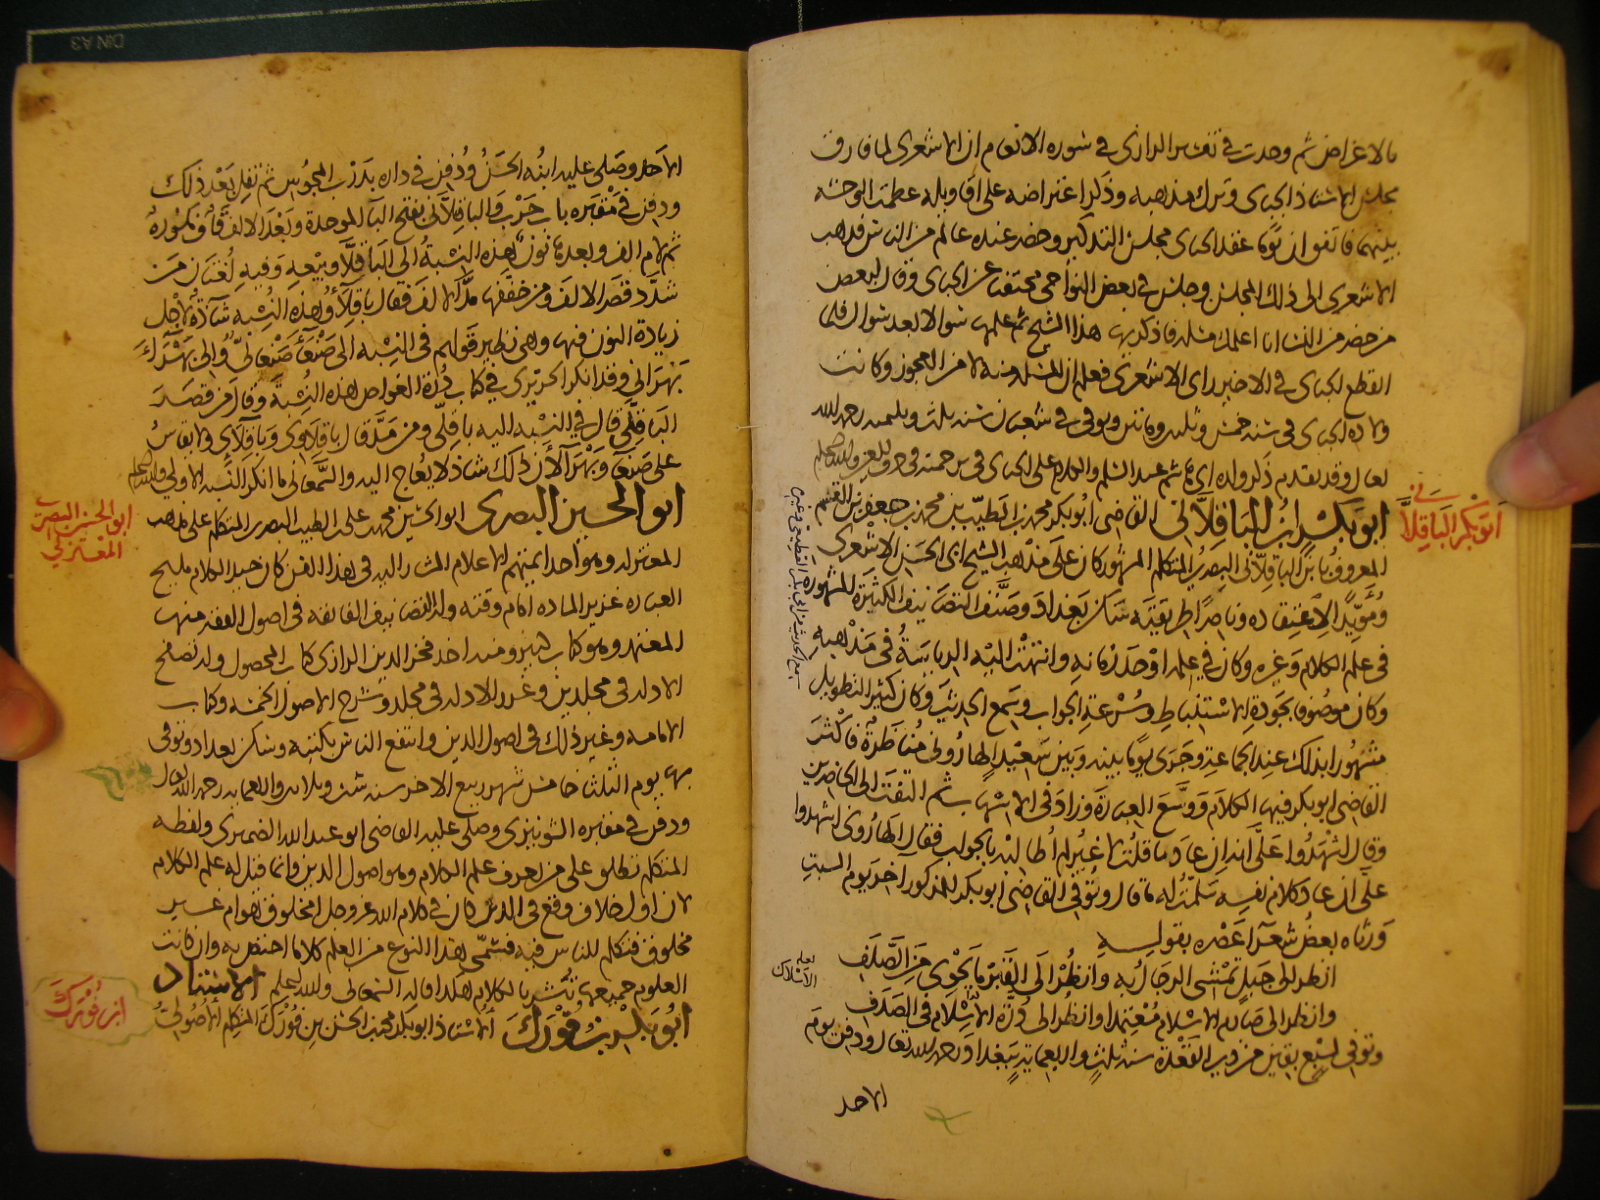 بالاغراض ثم وجدت في تفسير الرازي في سورة الانعام ان الاشعري لما فارق
مجلس الاستاذ الجباى وترك مذهبه وذكر اعتراضه على اقاويله عظمت الوحشة
بينهما فاتفق ان يوما عقد الجباى مجلس التذكير وحضر عنده عالم من الناس فذهب
الاشعري الى ذلك المجلس وجلس في بعض النواحي مختفيا عن الجباى وقال لبعض
من حضر من النساء انا اعلمك مسئلة فاذكريها لهذا الشيخ ثم علمها سؤالا بعد سؤال فلما
انقطع الجباى في الاخير راى الاشعري فعلم ان المسئلة منه لا من العجوز وكانت
ولادة الجباى في سنة خمس وثلثين ومائتين وتوفي في شعبان سنة ثلث وثلثمية رحمه الله
تعالى وقد تقدم ذكر ولده ابي هاشم عبد السلم والكلام على الجباى في ترجمته في حرف العين والله اعلم
ابو بكر ابن الباقلاني القاضي ابو بكر محمد بن الطيب بن محمد بن جعفر بن القسم
المعروف بابن الباقلاني البصري المتكلم المشهور كان على مذهب الشيخ ابي الحسن الاشعري
ومؤيدا لاعتقاده وناصرا طريقته سكن بغداد وصنف التصانيف الكثيرة المشهورة
في علم الكلام وغيره وكان في علمه اوحد زمانه وانتهت اليه الرياسة في مذهبه
وكان موصوفا بجودة الاستنباط وسرعة الجواب وسمع الحديث وكان كثير التطويل
مشهورا بذلك عند الجماعة وجرى يوما بينه وبين سعيد الهاروني مناظرة فاكثر
القاضي ابو بكر فيها الكلام ووسع العبارة وزاد في الاسهاب ثم التفت الى الحاضرين
وقال اشهدوا علي انه ان عاد ما قلت لا غير لم اطالبه بالجواب فقال الهاروني اشهدوا
علي ان عاد كلام نفسه سلمت له ما قال وتوفي القاضي ابو بكر المذكور آخر يوم السبت
ورثاه بعض شعرآء عصره بقوله
انظر الى جبل تمشي الرجال به وانظر الى القبر ما يحوي من الصلف
وانظر الى صارم الاسلام مغتمدا وانظر الى درة الاسلام في الصدف
وتوفي لسبع بقين من ذي القعدة سنة ثلث واربعماية ببغداد رحمه الله تعالى ودفن يوم
الاحد
ابو بكر الباقلاني
سمع الحديث من ابي بكر القطيعي وغيره
الاحد وصلى عليه ابنه الحسن ودفن في داره بدرب المجوس ثم نقل بعد ذلك
ودفن في مقبرة باب حرب والباقلاني بفتح البآ الموحدة وبعد الالف قاف مكسورة
ثم لام الف وبعدها نون هذه النسبة الى الباقلا وبيعه وفيه لغتان من
شدد قصر الالف ومن خففها مد الالف فقال باقلآء وهذه النسبة شآذة لاجل
زيادة النون فيها وهي نظير قولهم في النسبة الى صنعآء صنعاني والى بهرآء
بهراني وقد انكر الحريري في كتاب درة الغواص هذه النسبة وقال من قصر
الباقلى قال في النسبة اليه باقلي ومن مد قال باقلاوي وباقلآي ولا يقاس
على صنعآ وبهرآ لان ذلك شاذ لا يعاج اليه والسمعاني ما انكر النسبة الاولى والله اعلم
ابو الحسين البصري ابو الحسين محمد بن علي الطيب البصري المتكلم على مذهب
المعتزلة وهو احد ايمتهم الاعلام المشار اليه في هذا الفن كان جيد الكلام مليح
العبارة غزير المادة امام وقته وله التصانيف الفائقة في اصول الفقه منها
المعتمد وهو كتاب كبير ومنه اخذ فخر الدين الرازي كتاب المحصول وله تصفح
الادلة في مجلدين وغرر الادلة في مجلد وشرح الاصول الخمسة وكتاب
الامامة وغير ذلك في اصول الدين وانتفع الناس بكتبه وسكن بغداد وتوفي
بها يوم الثلثا خامس شهر ربيع الاخر سنة ست وثلاثين واربعماية رحمه الله تعالى
ودفن في مقبرة الشونيزي وصلى عليه القاضي ابو عبد الله الصيمري ولفظة
المتكلم تطلق على من يعرف علم الكلام وهو اصول الدين وانما قيل له علم الكلام
لان اول خلاف وقع في الدين كان في كلام الله عز وجل امخلوق هو ام غير
مخلوق فتكلم الناس فيه فسمي هذا النوع من العلم كلاما اختص به وان كانت
العلوم جميعها تنشر بالكلام هكذا قاله السمعاني والله اعلم الاستاد
ابو بكر بن فورك الاستاذ ابو بكر محمد بن الحسن بن فورك المتكلم الاصولي
ابو الحسين البصري
المعتزلي
ابن فورك